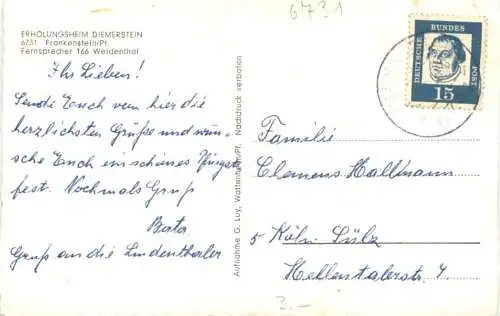 6731
ERHOLUNGSHEIM DIEMERSTEIN
6731 Frankenstein/Pf.
Fernsprecher 166 Weidenthal
Ihr Lieben!
Sende Euch von hier die
herzlichsten Grüße und wün-
sche Euch ein schönes Pfingst-
fest. Nochmals Gruß
Gruß an die Lindenthaler
Aufnahme G. Luy, Wattenheim/Pf. Nachdruck verboten
DEUTSCHE BUNDES POST
15
Familie
Clemens Hallmann
5 Köln-Sülz
Hellentalerstr. 4
3.-